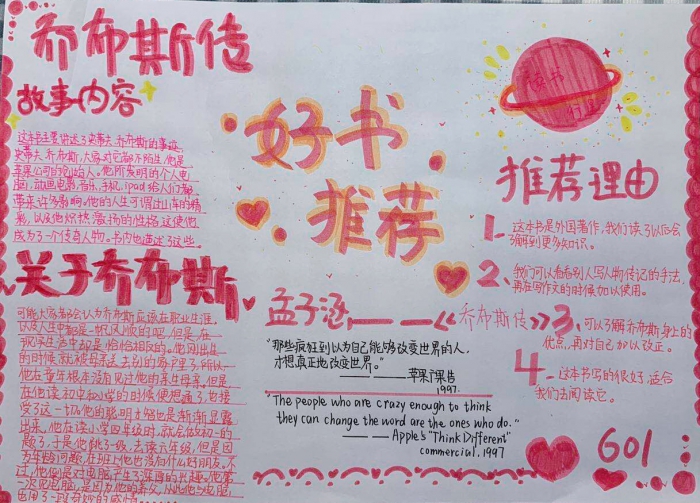 乔布斯传
故事内容
这本书主要讲述了史蒂夫·乔布斯的事迹,
史蒂夫·乔布斯,大家对它都不陌生,他是
苹果公司的创始人。他所发明的个人电
脑、动画电影、音乐、手机、ipad给人们都
带来许多影响。他的人生可谓过山车的精
彩,以及他炽热激扬的性格,这使他
成为了一个传奇人物。书内也讲述了这些。
关于乔布斯
可能大家都会认为乔布斯应该在职业生涯,
以及人生中都是一帆风顺的吧,但是,在
现实生活中却是恰恰相反的。他刚出生
的时候就被母亲送去别的客户里了,所以,
他在童年根本没有见过他的亲生母亲。但是,
在他读初中和小学的时候便想通了,也接
受了这一切。他的聪明才智也是渐渐显露
出来,他在读小学四年级时,就会做初一的
题了,于是他跳了一级,去读六年级,但是因
为年龄问题,在班上他也没有什么好朋友。不
过,他倒是对电脑产生了浓厚的兴趣。他第
一次见电脑,是因为他的养父,从此他与电脑
也有了一段奇妙的感情。
好书
推荐
读书
行星
推荐理由
1、这本书是外国著作,我们读了以后会
了解到更多知识。
2、我们可以看看别人写人物传记的手法,
再在写作文的时候加以使用。
3、可以了解乔布斯身上的
优点,再对自己加以改正。
4、这本书写的很好,适合
我们去阅读它。
孟子涵,——《乔布斯传》
"那些疯狂到以为自己能够改变世界的人,
才想真正地改变世界。"
———苹果广告
1997.
"The people who are crazy enough to think
they can change the word are the ones who do."
—— Apple's "Think Different"
commercial, 1997
601